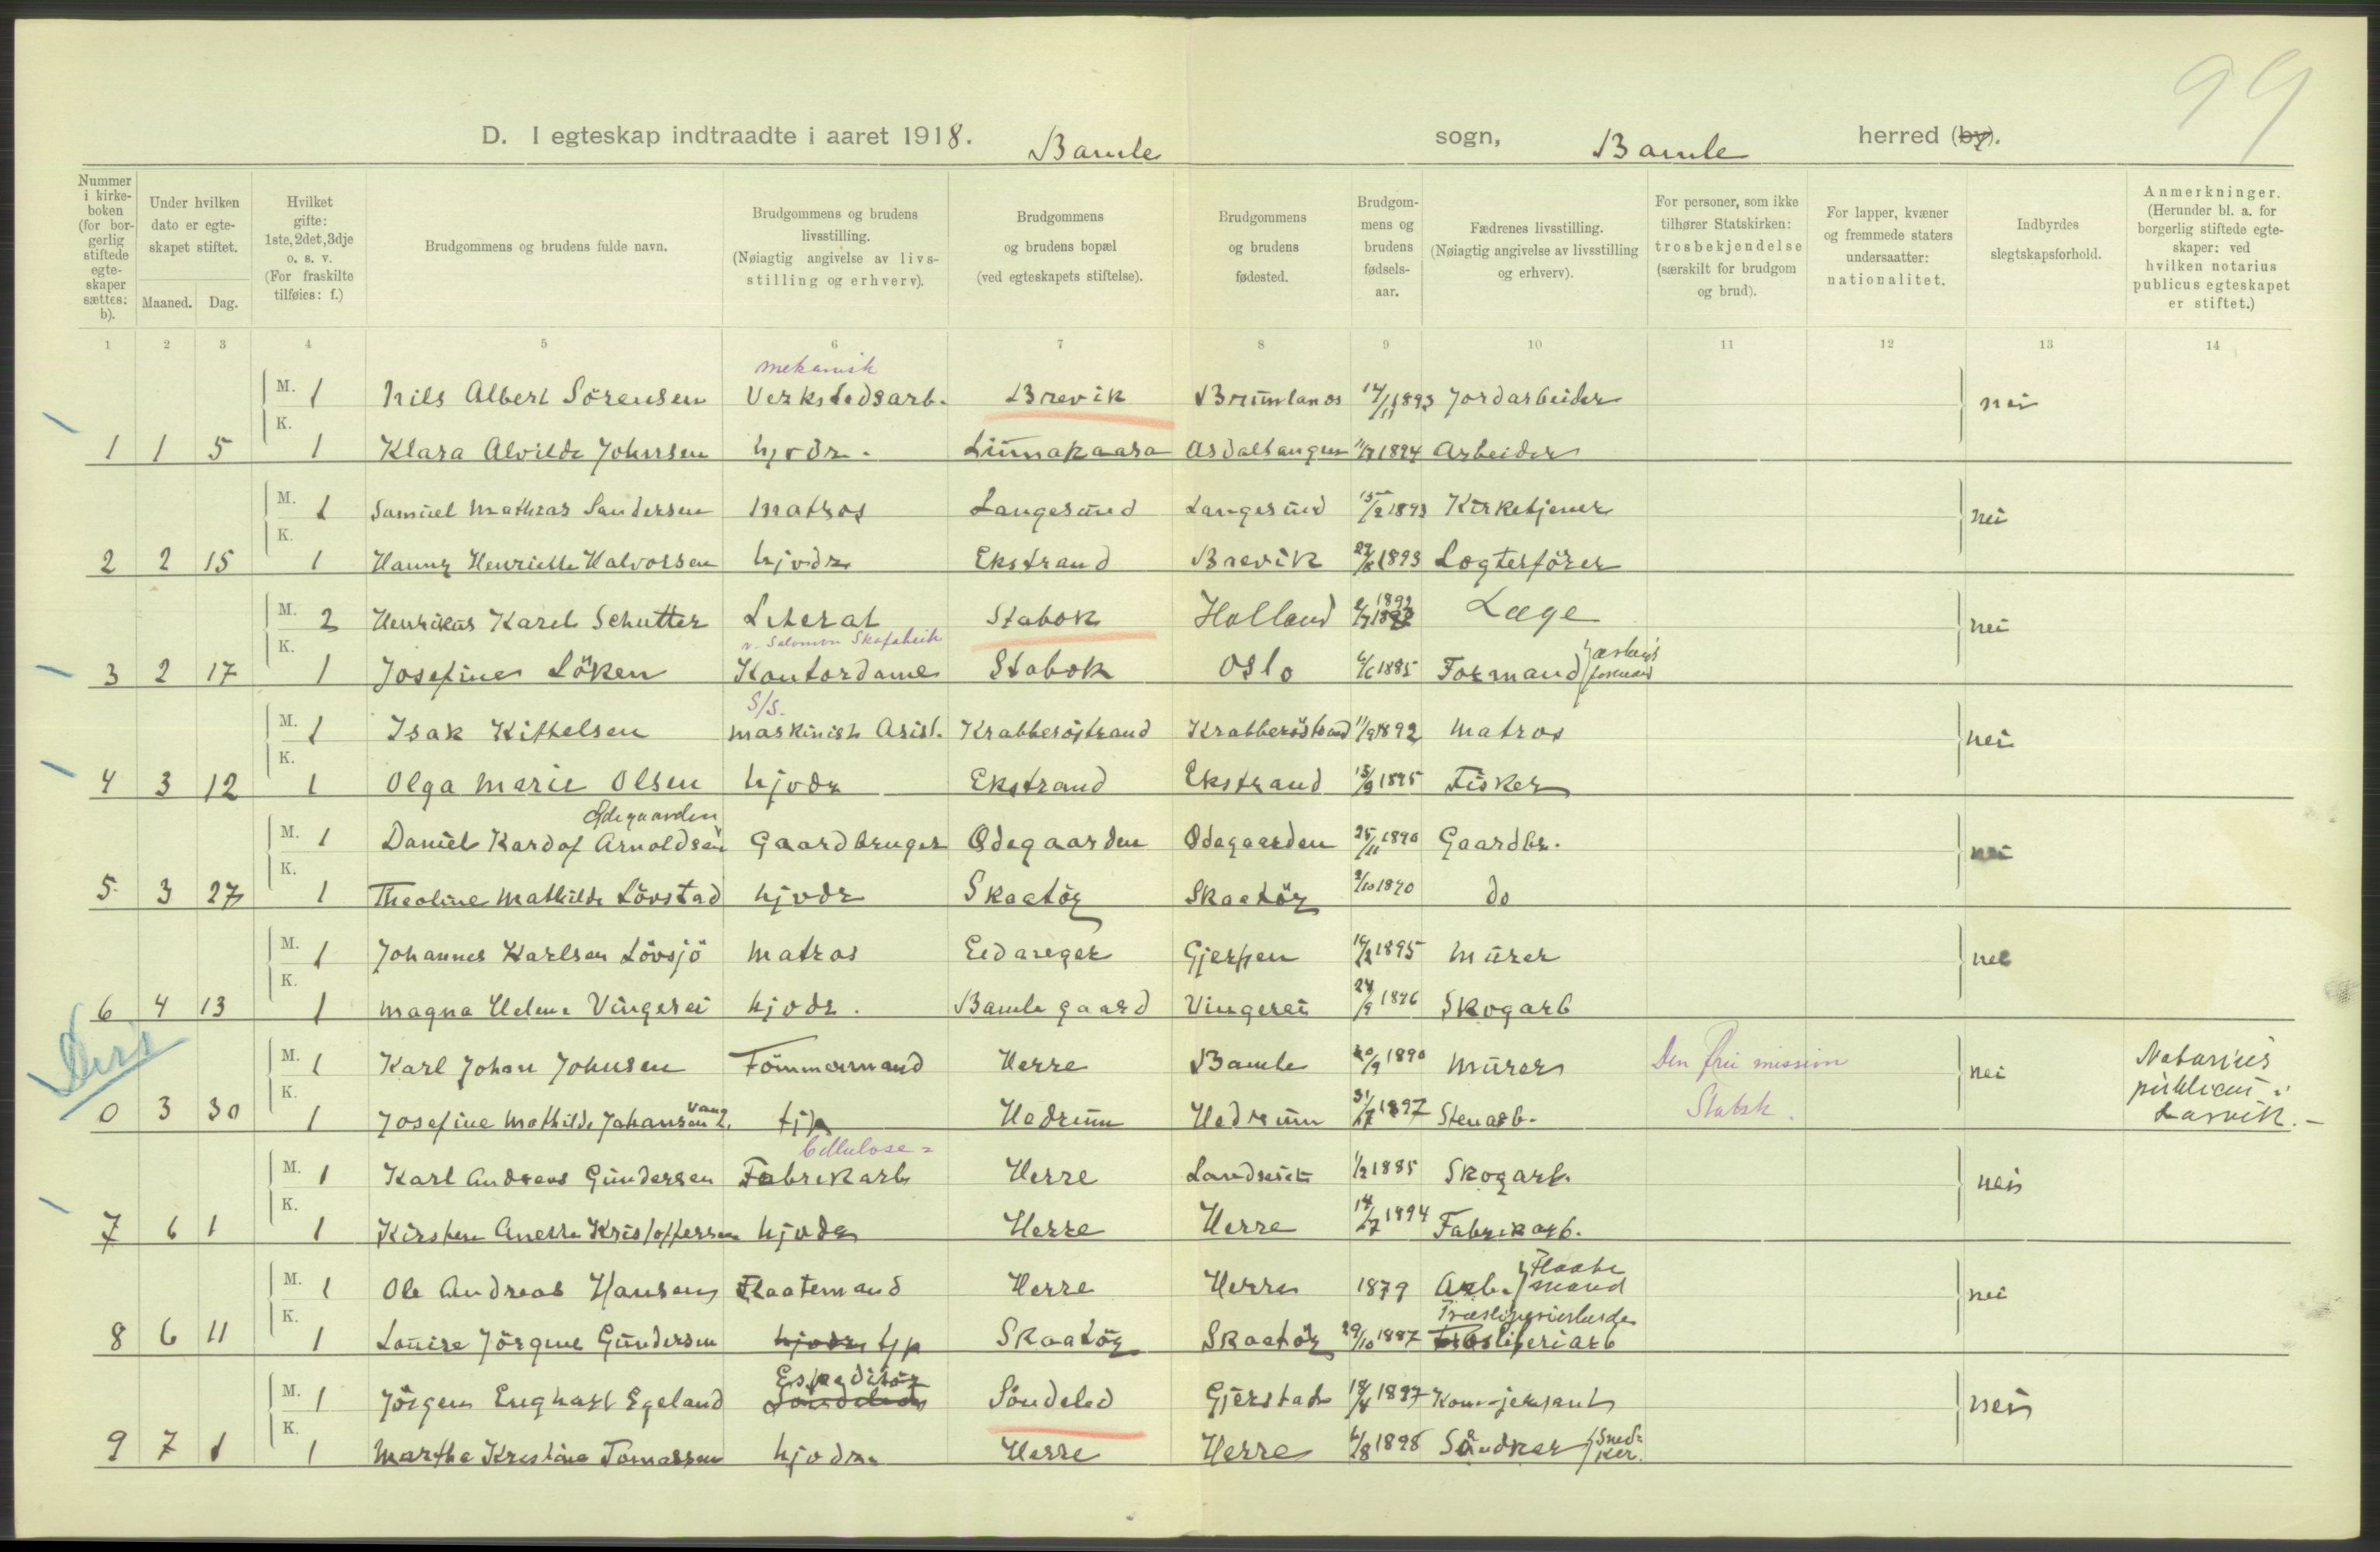 99
D. I egteskap indtraadte i aaret 1918. Bamle sogn, Bamle herred (by).
Nummer i kirke- boken (for bor- gerlig stiftede egte- skaper sættes: b).
Under hvilken dato er egte- skapet stiftet.
Maaned. Dag.
Hvilket gifte: 1ste, 2det, 3dje o. s. v. (For fraskilte tilføies: f.)
Brudgommens og brudens fulde navn.
Brudgommens og brudens livsstilling. (Nøiagtig angivelse av livs- stilling og erhverv).
Brudgommens og brudens bopæl (ved egteskapets stiftelse).
Brudgommens og brudens fødested.
Brudgom- mens og brudens fødsels- aar.
Fædrenes livsstilling. (Nøiagtig angivelse av livsstilling og erhverv).
For personer, som ikke tilhører Statskirken: trosbekjendelse (særskilt for brudgom og brud).
For lapper, kvæner og fremmede staters undersaatter: nationalitet.
Indbyrdes slegtskapsforhold.
Anmerkninger. (Herunder bl. a. for borgerlig stiftede egte- skaper: ved hvilken notarius publicus egteskapet er stiftet.)
1 2 3 4 5 6 7 8 9 10 11 12 13 14
mekanisk
M. 1 Nils Albert Sörensen Verkstedsarb. Brevik Brunlanes 14/11 1893 Jordarbeider nei
1 1 5 K. 1 Klara Alvilde Johnsen hjvdr. Asdaltangen 1894 Arbeider
M. 1 Samuel Mathias Sandersen Matros Langesund Langesund 15/2 1893 Kirketjener nei
2 2 15 K. 1 Hanny Henriette Halvorsen hjvdr Ekstrand Brevik 1893 Logterförer
M. 2 Henrikus Karel Schutter Literat Stabok Holland 1892 Læge nei
v. Salomon Skofabrik
3 2 17 K. 1 Josefine Löken Kontordame Stabok Oslo 1885 Formand
S/S.
M. 1 Isak Kittelsen Maskinist Asist. Krabberöstrand Krabberöstrand 11/9 1892 Matros nei
4 3 12 K. 1 Olga Marie Olsen hjvdr Ekstrand Ekstrand 15/9 1895 Fisker
Ødegaarden
M. 1 Daniel Kardof Arnoldsen Gaardbruger Ødegaarden Ødegaarden 25/11 1890 Gaardbr. nei
5 3 27 K. 1 Theoline Mathilde Lövstad hjvdr Skaatöy Skaatöy 2/10 1890 do
M. 1 Johannes Karlsen Lövsjö Matros Eidanger Gjerpen 1895 Murer nei
6 4 13 K. 1 Magna Helene Vingerei hjvdr. Bamle gaard Vingerei 24/9 1896 Skogarb
M. 1 Karl Johan Johnsen Tömmermand Herre Bamle 20/9 1890 Murer Den frie mission nei Notarius
publicus i
0 3 30 K. 1 Josefine Mathilde Johansen tjp Hedrum Hedrum 1897 Stenarb. Statsk. Larvik.-
Cellulose=
M. 1 Karl Andreas Gundersen Fabrikarb Herre 1/2 1885 Skogarb. nei
7 6 1 K. 1 Kirsten Anette Kristoffersen hjvdr Herre Herre 14/7 1894 Fabrikarb.
M. 1 Ole Andreas Hansen Flaatemand Herre Herre 1879 Arb. Flaate mand nei
8 6 11 K. 1 Louise Jörgine Gundersen hjvdr tjp Skaatöy Skaatöy 29/10 1887 Træsliperiarb
Espeditör
M. 1 Jörgen Enghart Egeland Söndeled Söndeled Gjerstad 18/4 1897 nei
9 7 1 K. 1 Marthe Kristine Tomassen hjvdr. Herre Herre 6/8 1898 Snedker